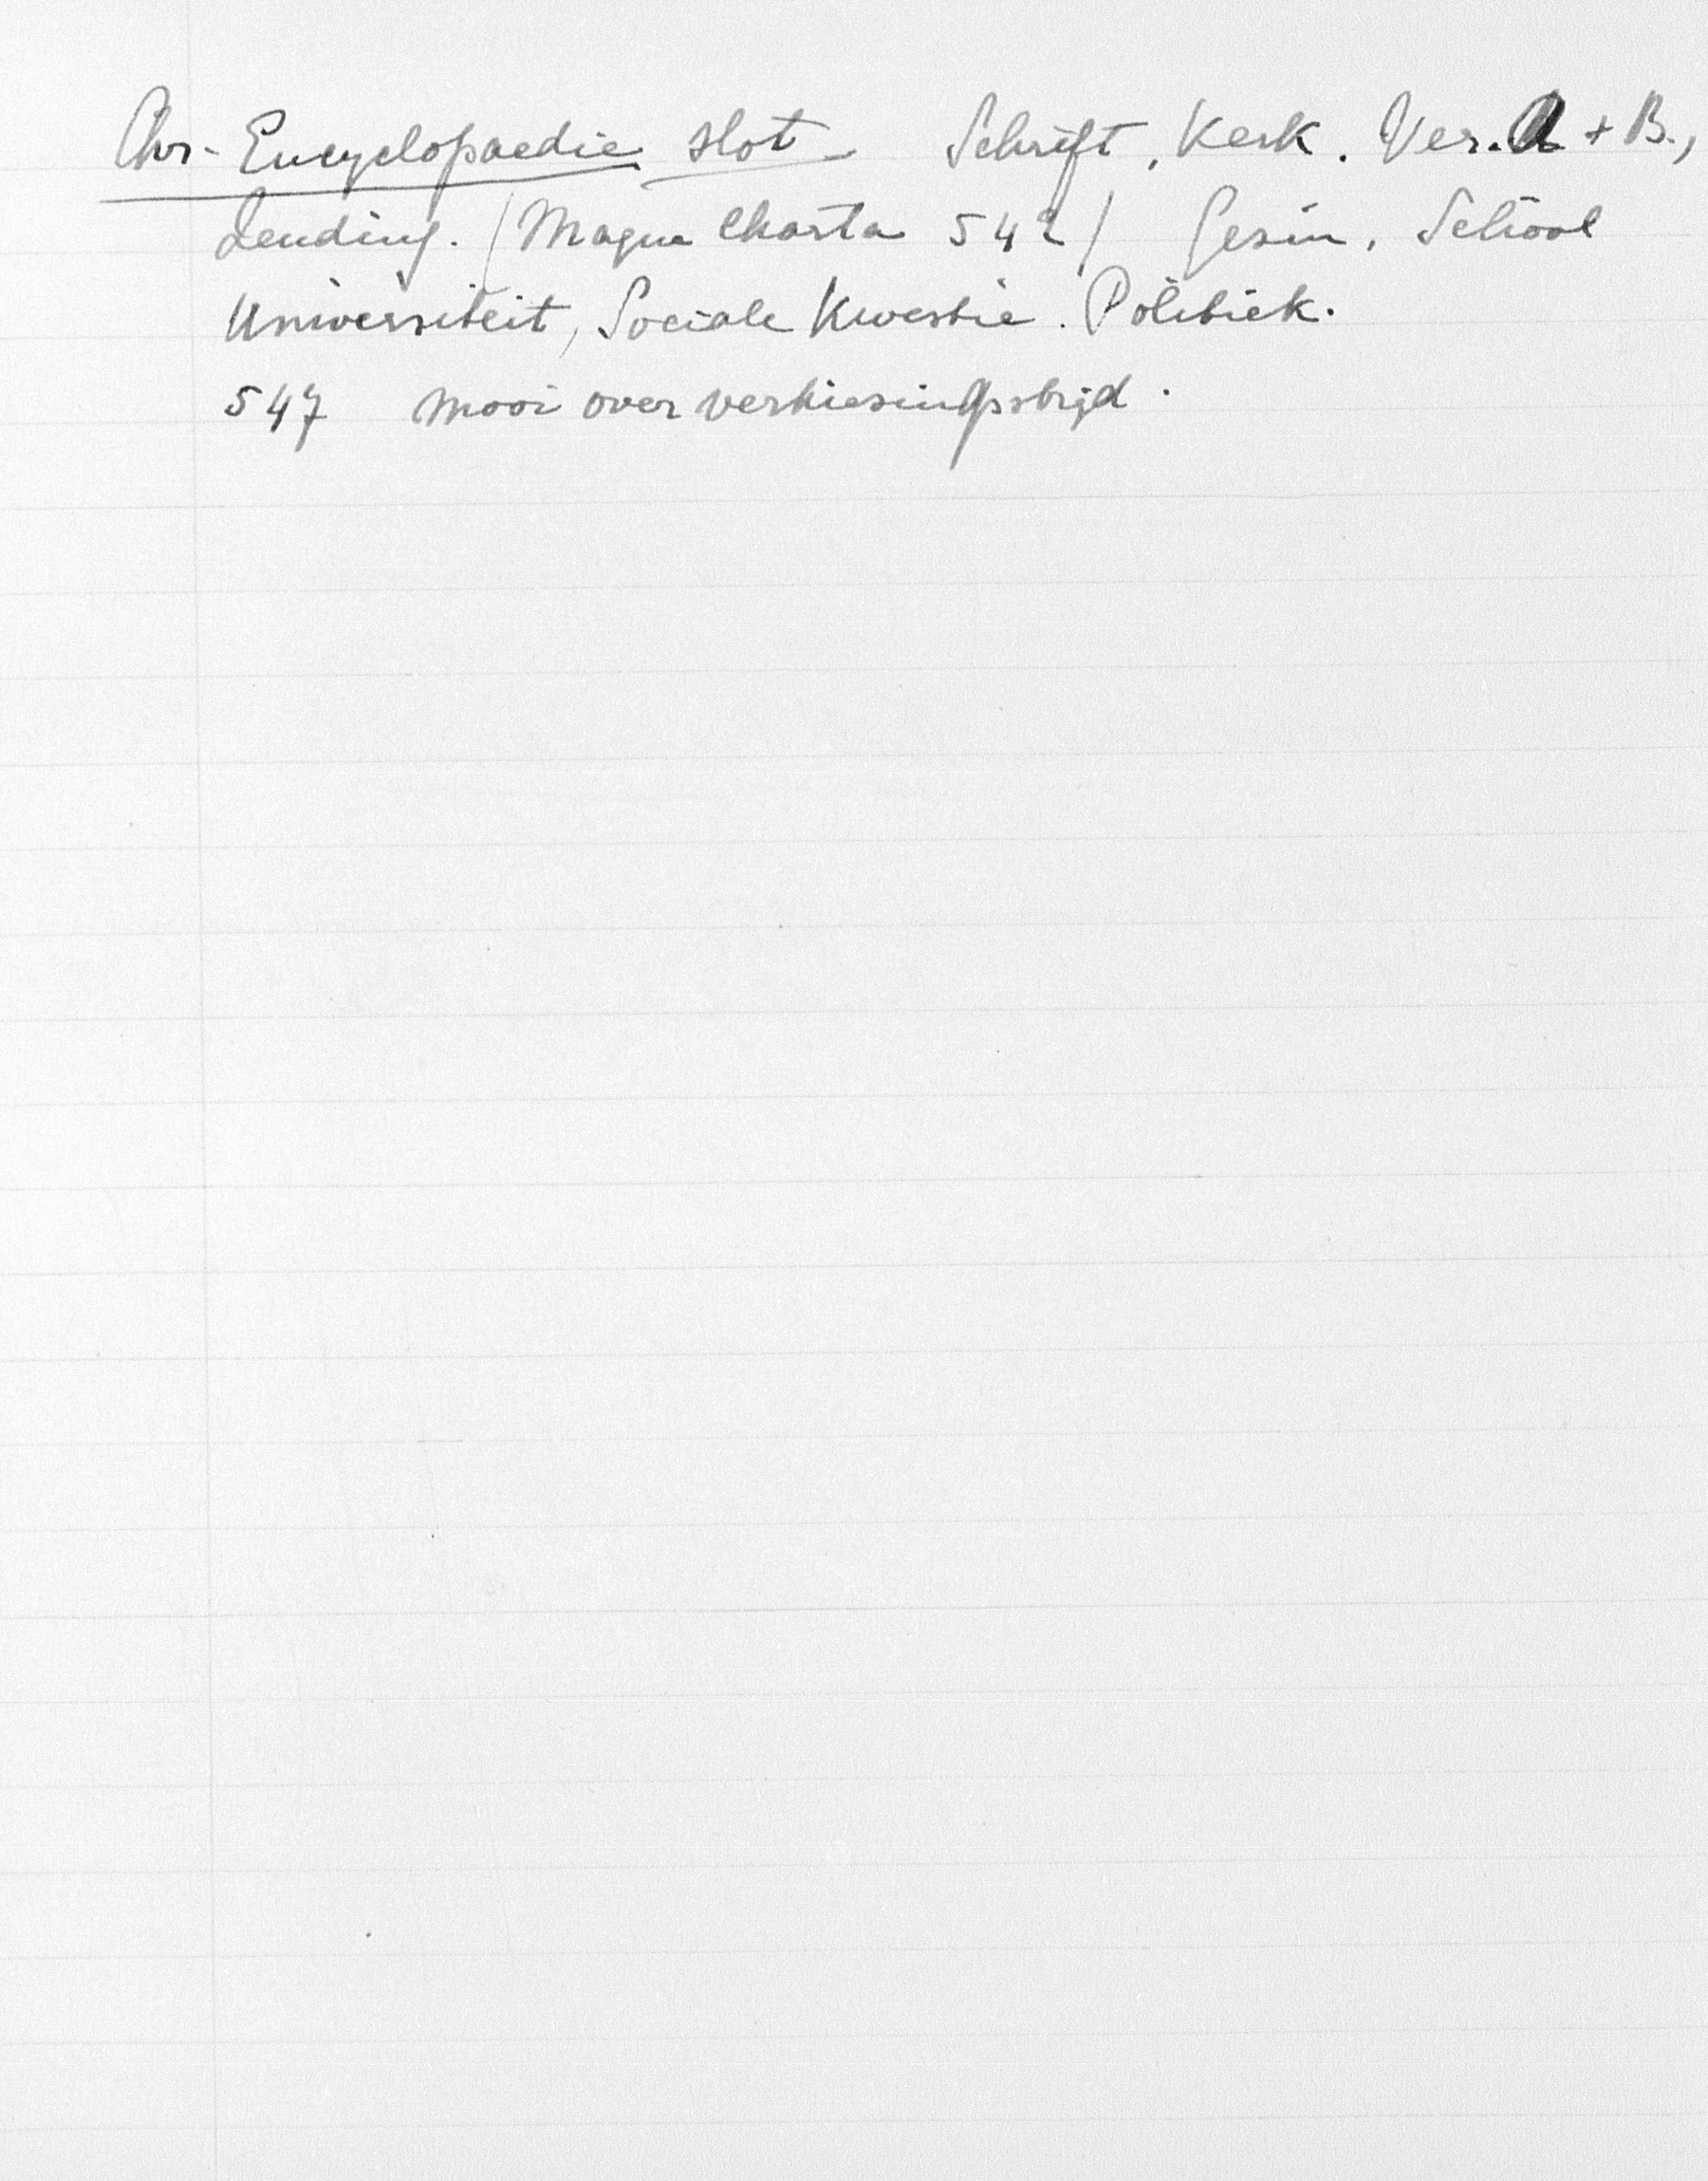 Chr. Encyclopaedie slot Schrift, Kerk. Ver. A + B.,
Zending. (Magna Charta 542) Gesin, School
Universiteit, Sociale Kwestie. Politiek.
547 mooi over verkiesingsstrijd.